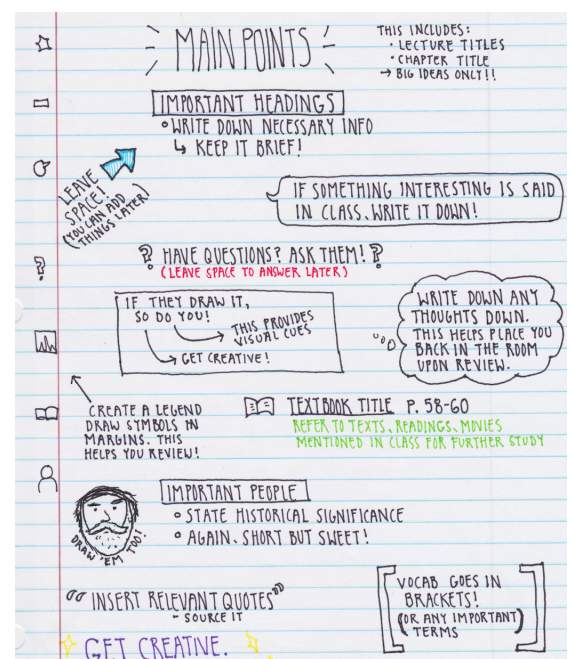 MAIN POINTS
THIS INCLUDES:
• LECTURE TITLES
• CHAPTER TITLE
→ BIG IDEAS ONLY!!
IMPORTANT HEADINGS
• WRITE DOWN NECESSARY INFO
↳ KEEP IT BRIEF!
LEAVE
SPACE!
(YOU CAN ADD
THINGS LATER)
IF SOMETHING INTERESTING IS SAID
IN CLASS, WRITE IT DOWN!
? HAVE QUESTIONS? ASK THEM! ?
(LEAVE SPACE TO ANSWER LATER)
IF THEY DRAW IT,
SO DO YOU!
THIS PROVIDES
VISUAL CUES
GET CREATIVE!
WRITE DOWN ANY
THOUGHTS DOWN.
THIS HELPS PLACE YOU
BACK IN THE ROOM
UPON REVIEW.
CREATE A LEGEND
DRAW SYMBOLS IN
MARGINS. THIS
HELPS YOU REVIEW!
TEXTBOOK TITLE P. 58-60
REFER TO TEXTS, READINGS, MOVIES
MENTIONED IN CLASS FOR FURTHER STUDY
IMPORTANT PEOPLE
• STATE HISTORICAL SIGNIFICANCE
• AGAIN, SHORT BUT SWEET!
DRAW 'EM TOO!
"INSERT RELEVANT QUOTES"
- SOURCE IT
[VOCAB GOES IN
BRACKETS!
(OR ANY IMPORTANT)
TERMS]
GET CREATIVE.